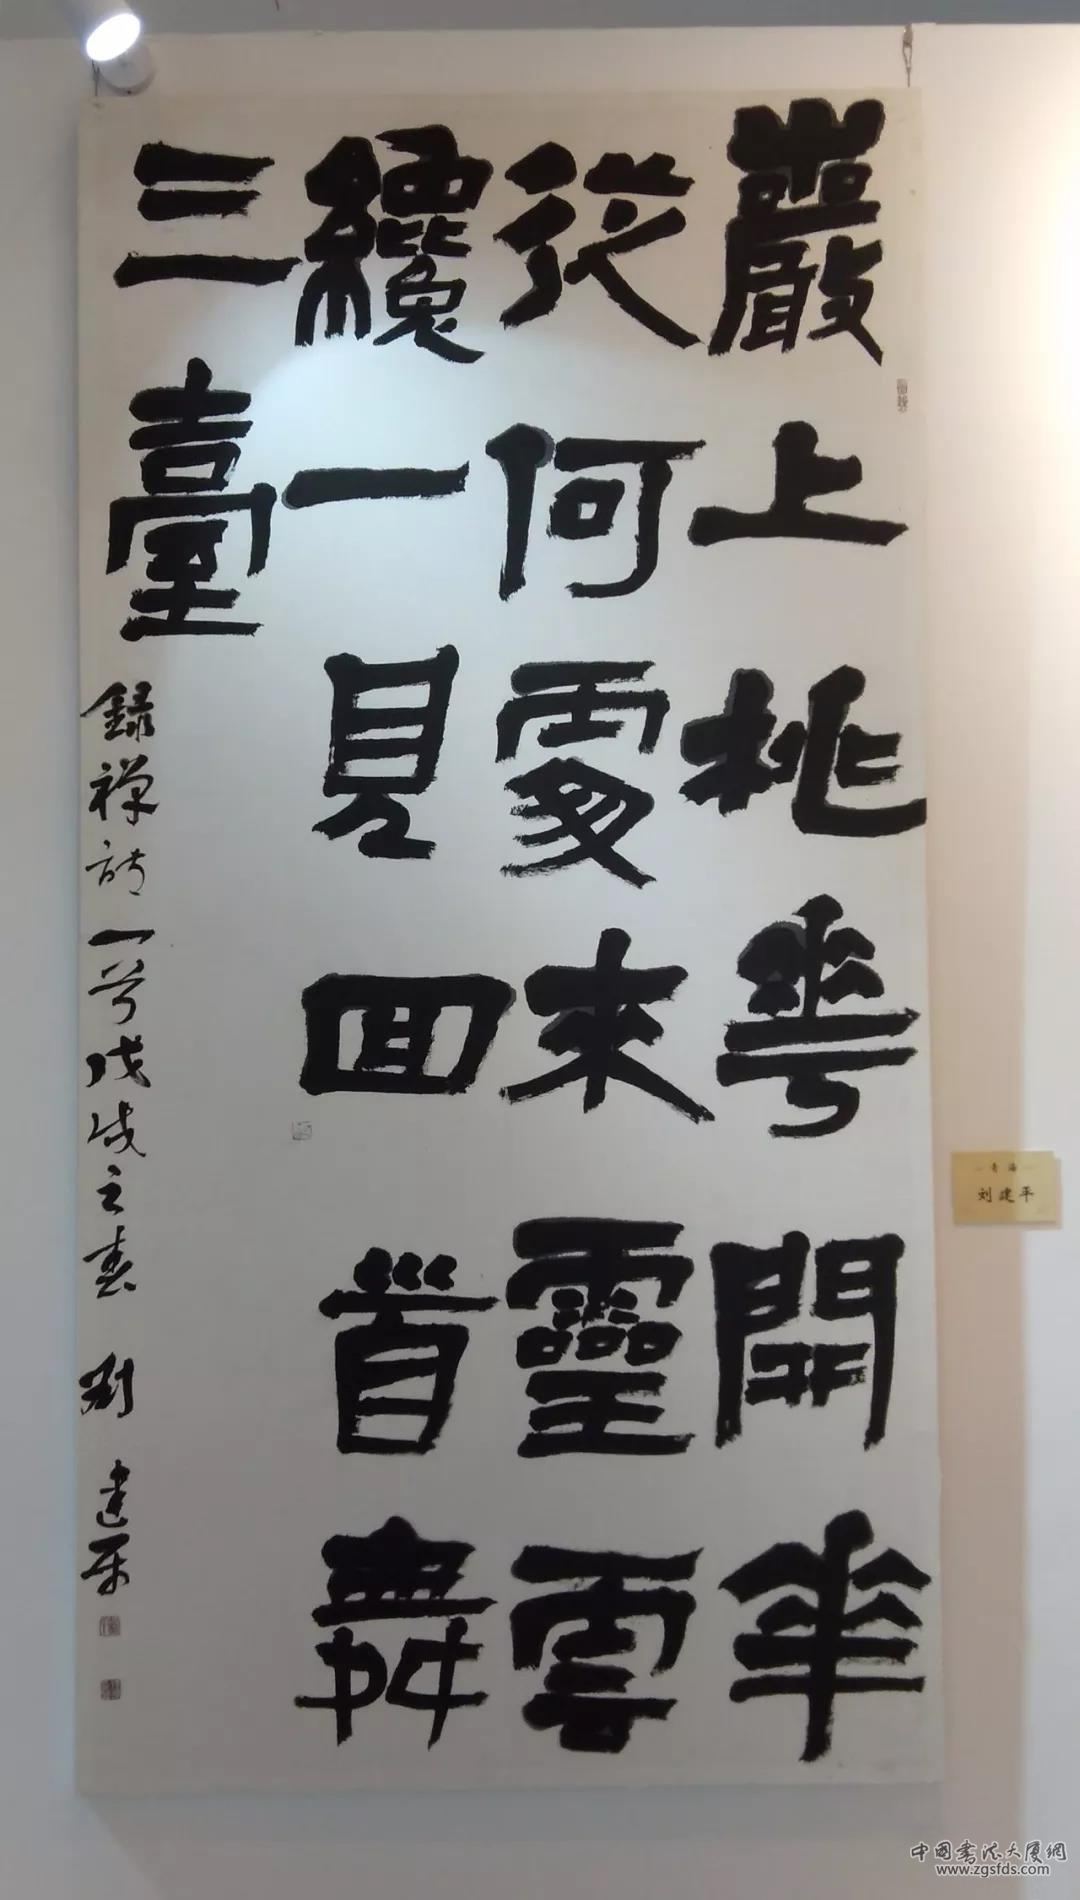 巖上桃華開華
從何處來靈雲
纔一見回首舞
三臺
錄禪詩一首戊戌之春 劉建平
青海
刘建平
中國书法大廈網
www.zgsfds.com